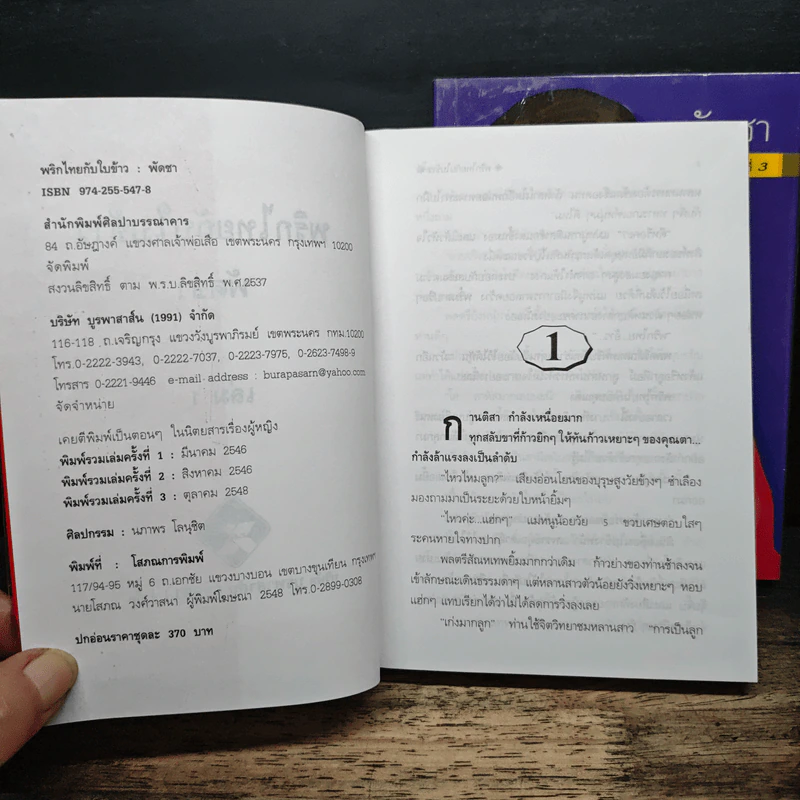 พริกไทยกับใบข้าว : พัดชา
ISBN 974-255-547-8
สำนักพิมพ์ศิลปาบรรณาคาร
84 ถ.อัษฎางค์ แขวงศาลเจ้าพ่อเสือ เขตพระนคร กรุงเทพฯ 10200
จัดพิมพ์
สงวนลิขสิทธิ์ ตาม พ.ร.บ.ลิขสิทธิ์ พ.ศ.2537
บริษัท บูรพาสาส์น (1991) จำกัด
116-118 ถ.เจริญกรุง แขวงวังบูรพาภิรมย์ เขตพระนคร กทม.10200
โทร.0-2222-3943, 0-2222-7037, 0-2223-7975, 0-2623-7498-9
โทรสาร 0-2221-9446 e-mail address : burapasarn@yahoo.com
จัดจำหน่าย
เคยตีพิมพ์เป็นตอนๆ ในนิตยสารเรื่องผู้หญิง
พิมพ์รวมเล่มครั้งที่ 1 : มีนาคม 2546
พิมพ์รวมเล่มครั้งที่ 2 : สิงหาคม 2546
พิมพ์รวมเล่มครั้งที่ 3 : ตุลาคม 2548
ศิลปกรรม : นภาพร โลนุชิต
พิมพ์ที่ : โสภณการพิมพ์
117/94-95 หมู่ 6 ถ.เอกชัย แขวงบางบอน เขตบางขุนเทียน กรุงเทพฯ
นายโสภณ วงศ์วาสนา ผู้พิมพ์โฆษณา 2548 โทร.0-2899-0308
ปกอ่อนราคาชุดละ 370 บาท
1
กานติสา กำลังเหนื่อยมาก
ทุกสลับขาที่ก้าวยิกๆ ให้ทันก้าวเหยาะๆ ของคุณตา...
กำลังล้าแรงลงเป็นลำดับ
"ไหวไหมลูก?" เสียงอ่อนโยนของบุรุษสูงวัยข้างๆ ชำเลือง
มองถามมาเป็นระยะด้วยใบหน้ายิ้มๆ
"ไหวค่ะ...แฮ่กๆ" แม่หนูน้อยวัย ๕ ขวบเศษตอบใสๆ
ระคนหายใจทางปาก
พลตรีสัณหเทพยิ้มมากกว่าเดิม ก้าวย่างของท่านช้าลงจน
เข้าลักษณะเดินธรรมดาๆ แต่หลานสาวตัวน้อยยังวิ่งเหยาะๆ หอบ
แฮ่กๆ แทบเรียกได้ว่าไม่ได้ลดการวิ่งลงเลย
"เก่งมากลูก" ท่านใช้จิตวิทยาชมหลานสาว "การเป็นลูก
3